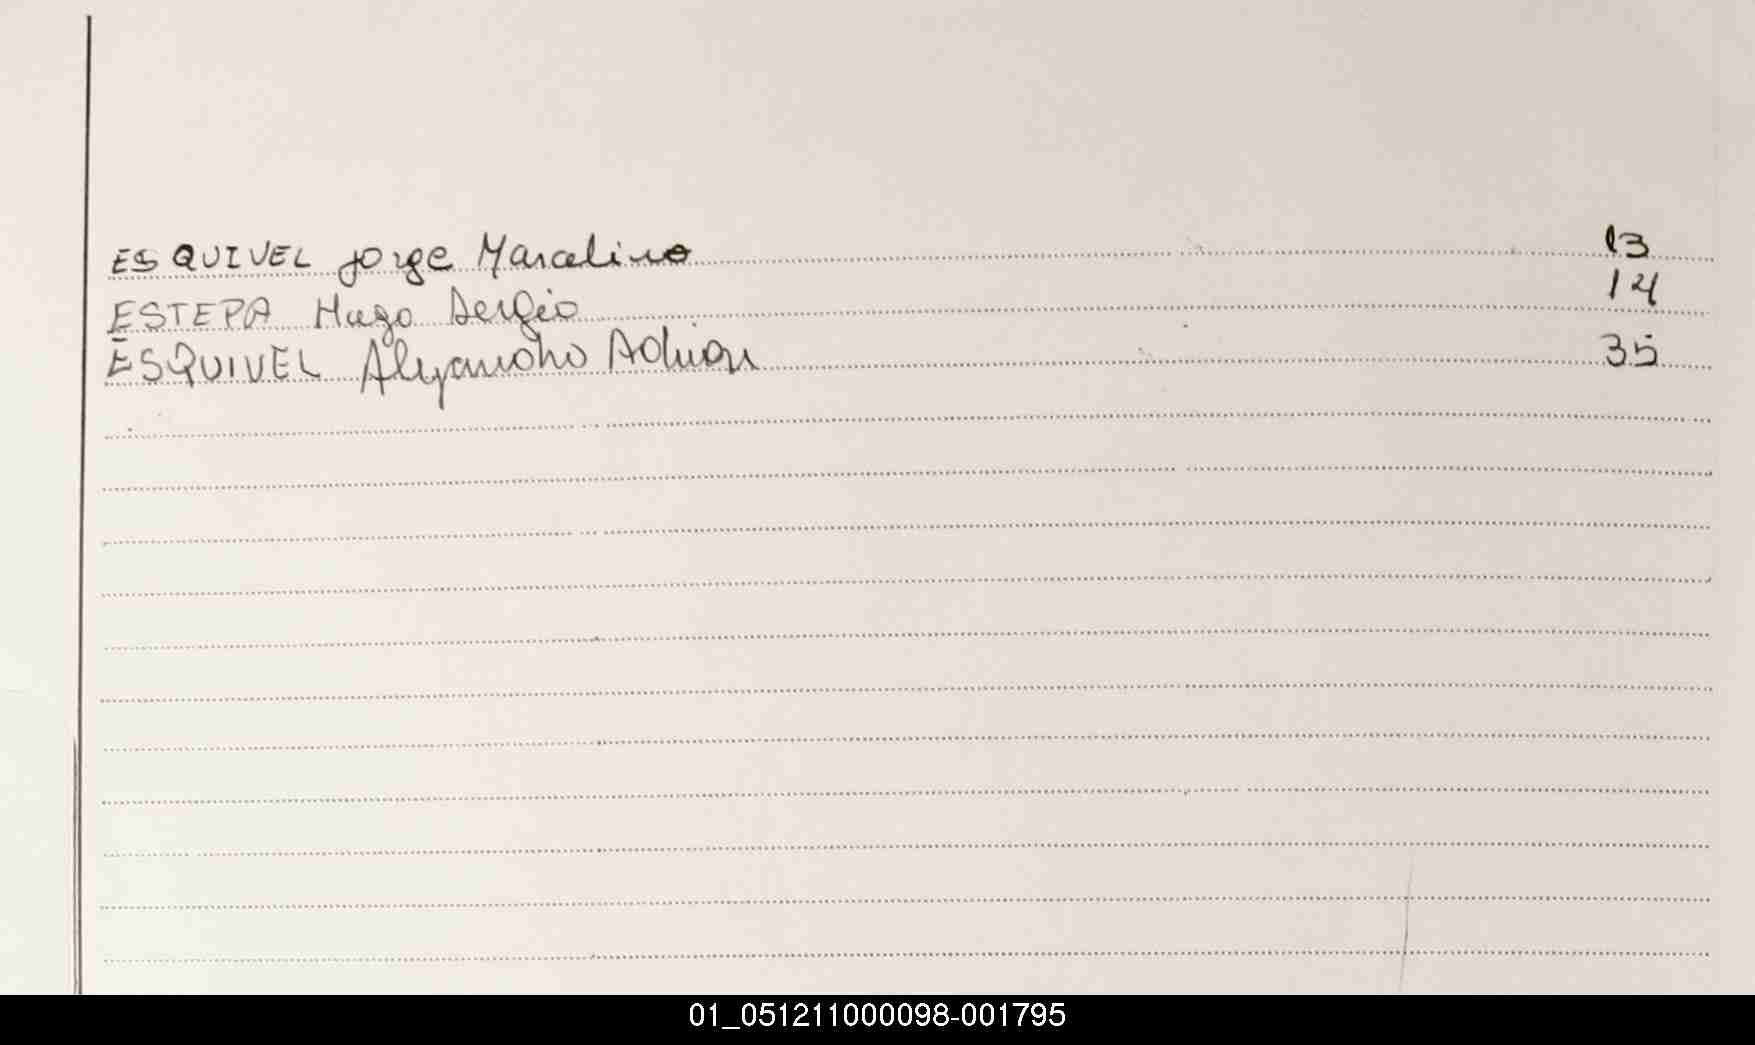 ESQUIVEL Jorge Marcelino 13
ESTEPA Hugo Sergio 14
ESQUIVEL Alejandro Adrian 35
01_051211000098-001795